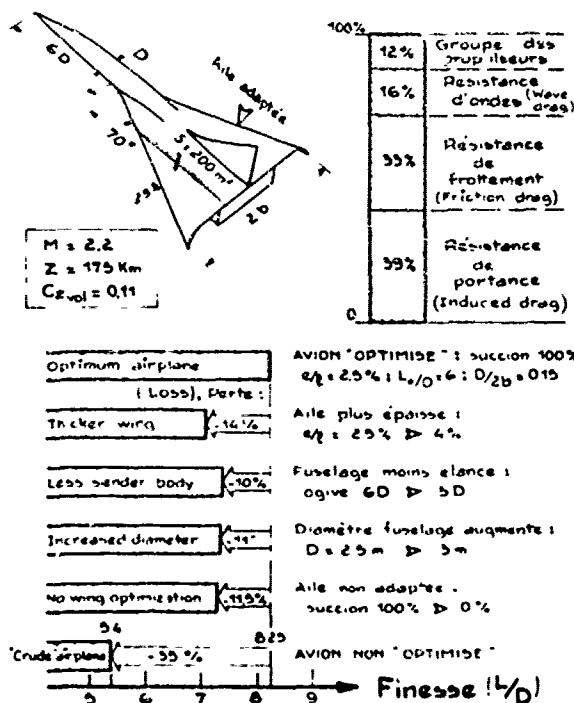 6D
D
Aile adaptée
70°
S = 200 m²
2D
M = 2.2
Z = 175 Km
Cz vol = 0,11
100%
12% Groupe des propulseurs
16% Resistance d'ondes (Wave drag)
33% Résistance de frottement (Friction drag)
39% Résistance de portance (Induced drag)
0
Optimum airplane
AVION "OPTIMISE" : succion 100%
e/l = 2.5% ; L./D = 6 ; D/2b = 0.15
(Loss), Perte :
Thicker wing -14%
Aile plus épaisse :
e/l = 2.5% ▷ 4%
Less slender body -10%
Fuselage moins elance :
ogive 6D ▷ 5D
Increased diameter -11
Diamètre fuselage augmente :
D = 2.5 m ▷ 3 m
No wing optimization -11.5%
Aile non adaptée .
succion 100% ▷ 0%
5.4
8.25
"Crude" airplane -35 %
AVION NON "OPTIMISE"
5 6 7 8 9
Finesse (L/D)